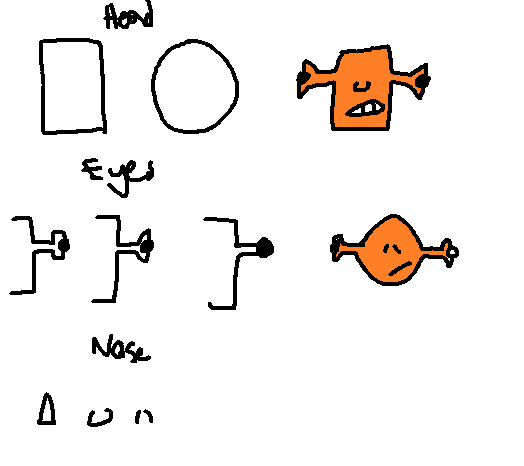 Head
Eyes
Nose